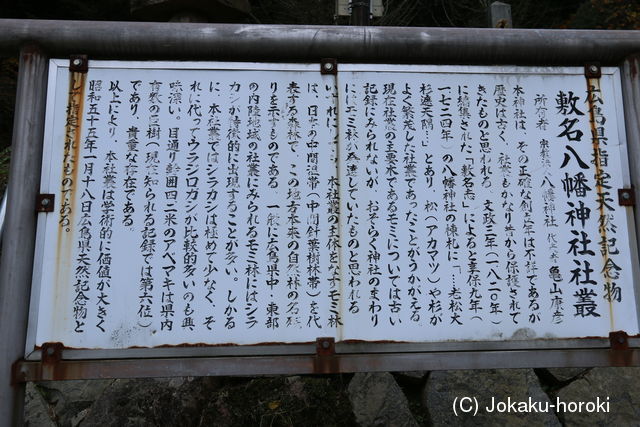 広島県指定天然記念物
敷名八幡神社社叢
所有者 八幡神社 亀山康彦
本神社は、その正確な創立年は不詳であるが
歴史は古く、社叢もかなり昔から保護されて
きたものと思われる。文政三年(一八二〇年)
に編集された「敷名志」によると享保九年(
一七二四年)の八幡神社の棟札に「‥老松大
杉遮天隅‥」とあり、松(アカマツ)や杉が
よく繁茂した社叢であったことがうかがえる。
現在社叢の主要木であるモミについては古い
記録にみられないが、おそらく神社のまわり
にはモミ林が発達していたものと思われる。
本社叢の主体をなすモミ林
は、日本の中間温帯(中間針葉樹林帯)を代
表する森林で、この地方本来の自然林の名残
りを示すものである。一般に広島県中・東部
の内陸地域の社叢にみられるモミ林にはシラ
カシが優勢的に出現することが多い。しかる
に、本社叢ではシラカシは極めて少なく、そ
れに代ってウラジロガシが比較的多いのも興
味深い。目通り幹囲四・二米のアベマキは県内
有数の巨樹(現在知られる記録では第六位)
であり、貴重な存在である。
以上により、本社叢は学術的に価値が大きく
昭和五十五年一月十八日広島県天然記念物と
して指定されたものである。
(C) Jokaku-horoki